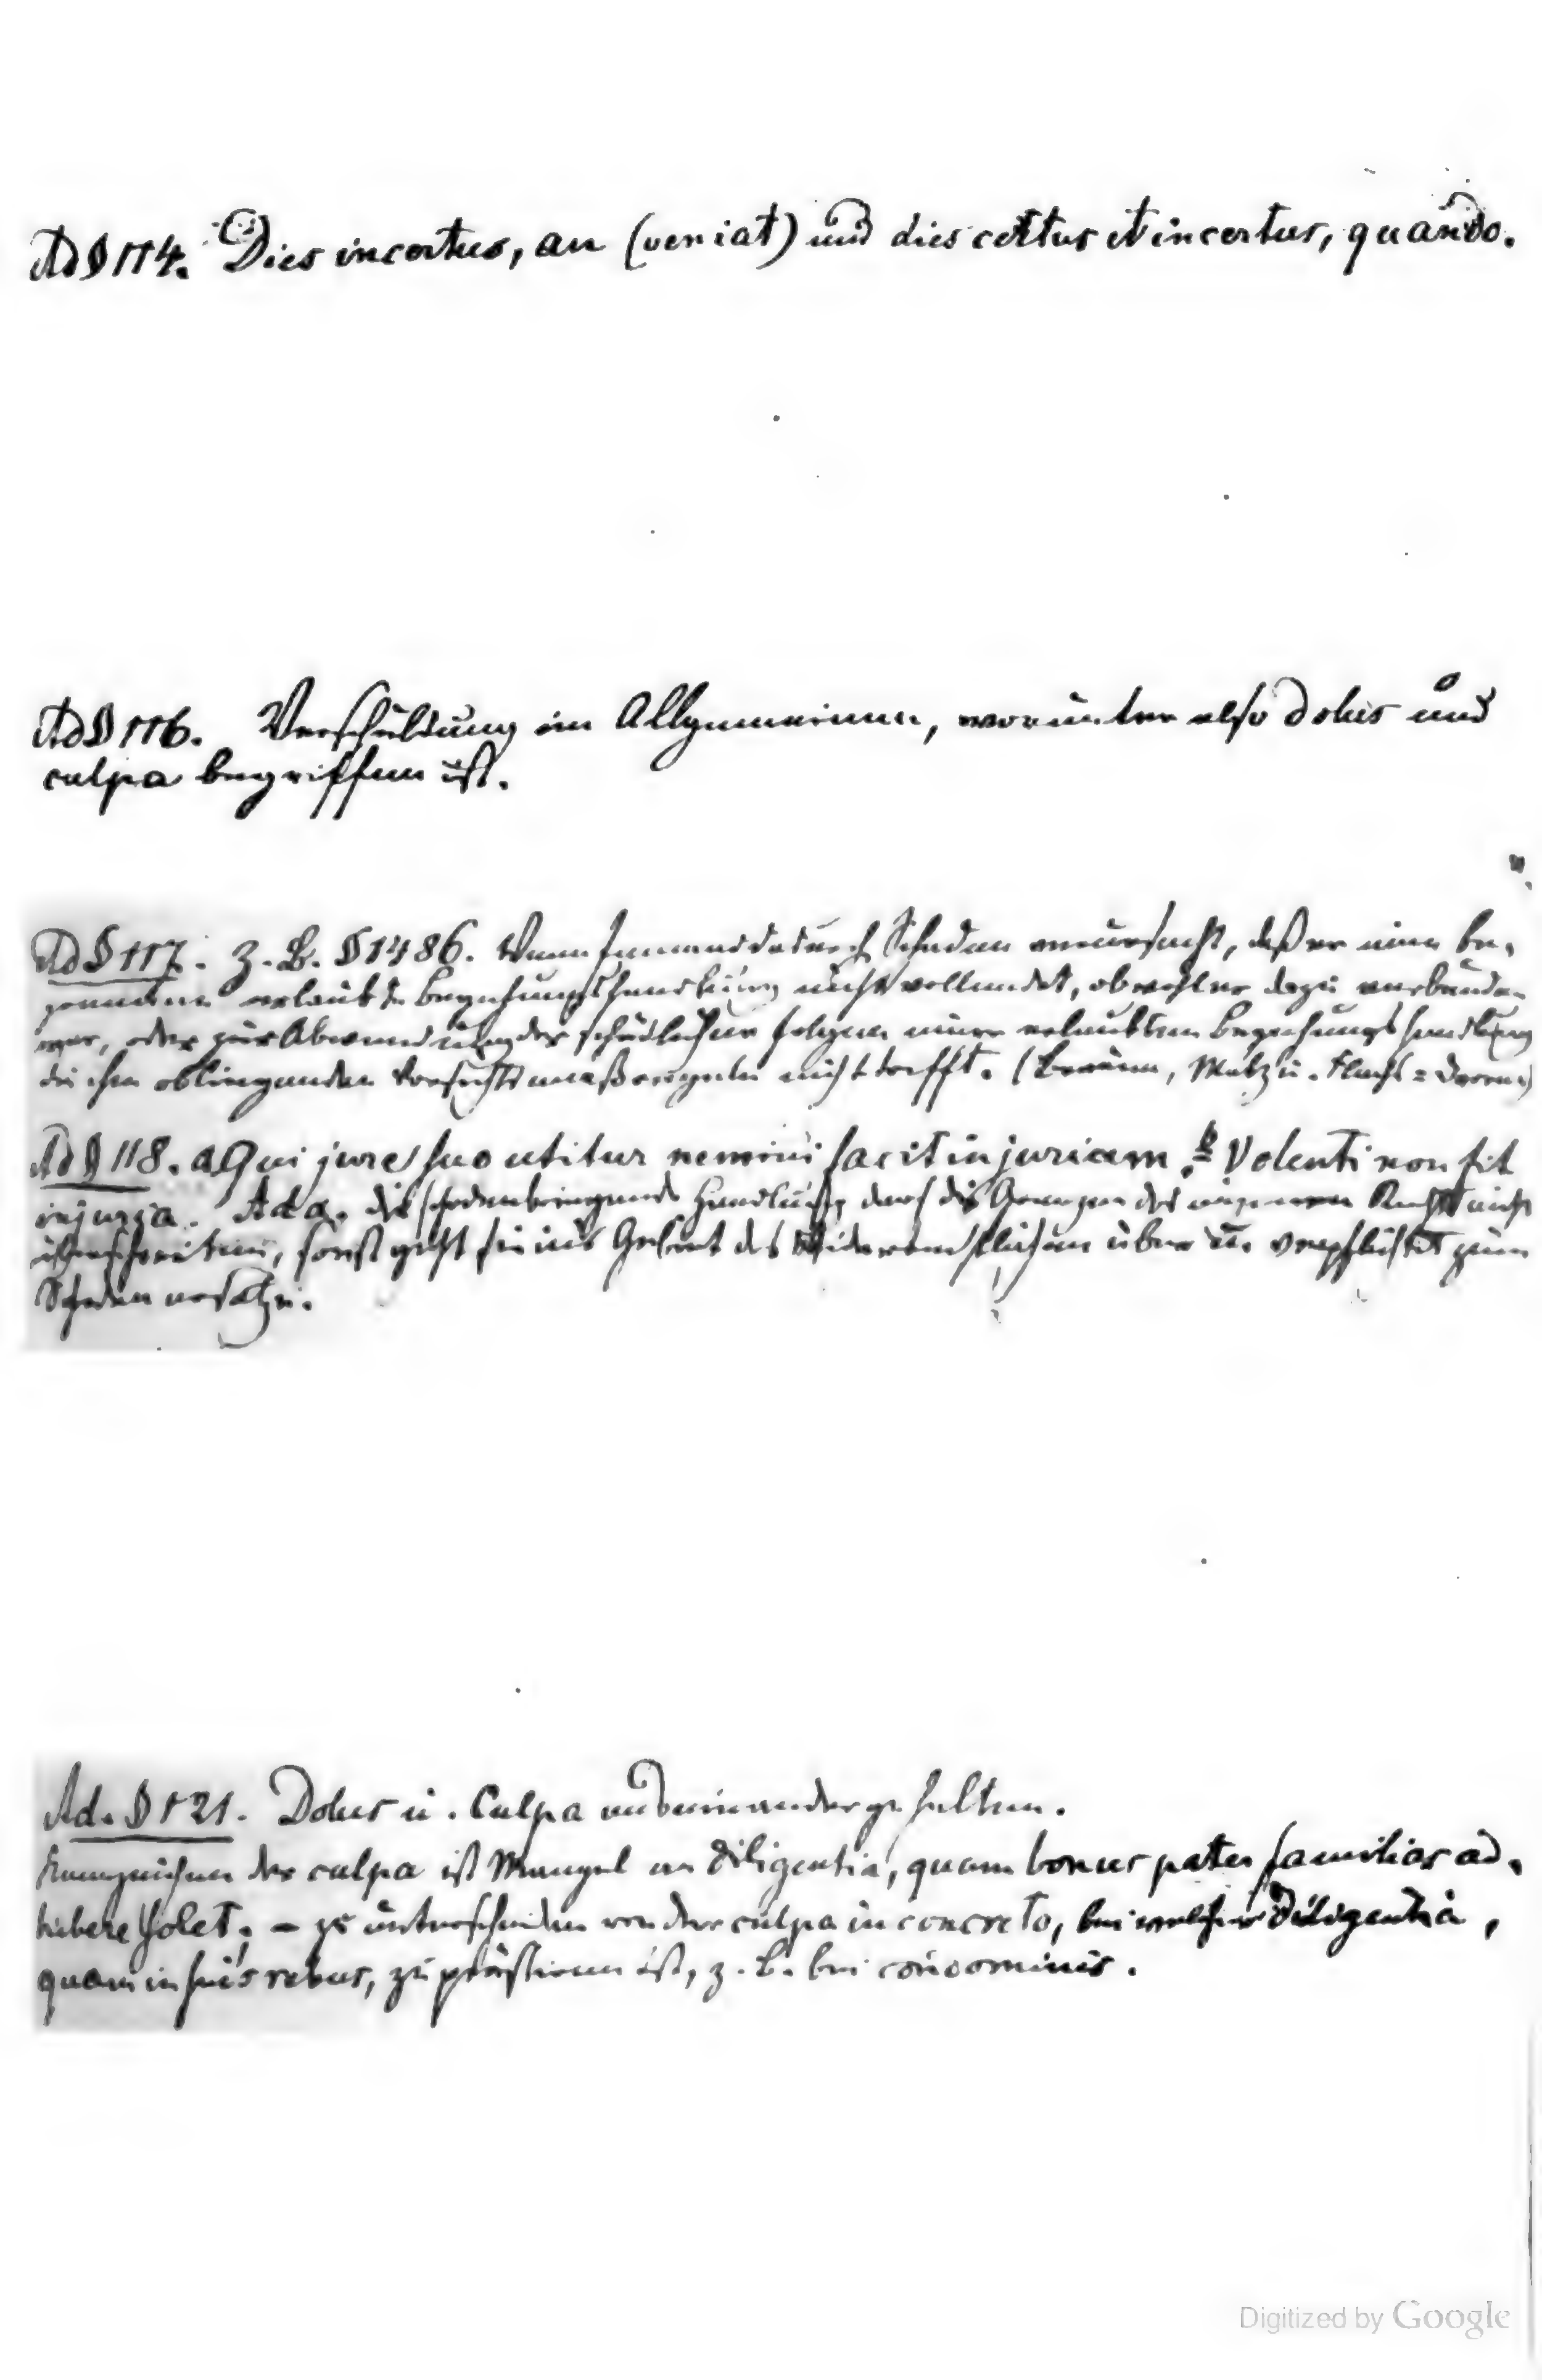 Ad § 114. Dies incertus, an (veniat) und dies certus et incertus, quando.
Ad § 116. Verschuldung im Allgemeinen, worunter also dolus und
culpa begriffen ist.
Ad § 117. Z. B. § 1486. Wenn Jemand dadurch Schaden verursacht, daß er eine be-
gonnene erlaubte Begehungshandlung nicht vollendet, obwohl er dazu verbunden
war, oder zur Abwendung der schädlichen Folgen einer erlaubten Begehungshandlung
die ihm obliegenden Vorsichtsmaßregeln nicht trifft. (Malz u. Flachs=Darren)
Ad § 118. a Qui jure suo utitur nemini facit injuriam. b Volenti non fit
injuria. Ad a. die schadenbringende Handlung darf die Grenzen des eigenen Rechts nicht
überschreiten, sonst geht sie ins Gebiet des Widerrechtlichen über u. verpflichtet zum
Schadenersatze.
Ad. § 121. Dolus u. Culpa auseinandergehalten.
Kennzeichen der culpa ist Mangel an diligentia, quam bonus pater familias ad-
hibere solet; – zu unterscheiden von der culpa in concreto, bei welcher diligentia,
quam in suis rebus, zu prästiren ist, z. B. bei condominis.
Digitized by Google